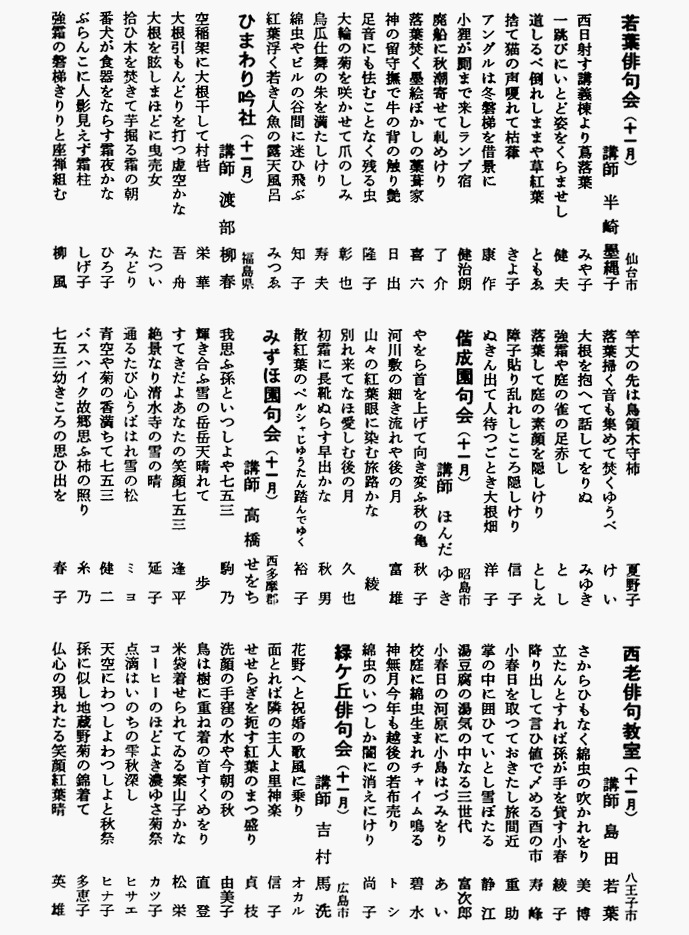 若葉俳句会（十一月）
仙台市
講師　半崎墨縄子
西日射す講義棟より蔦落葉　みや子
一跳びにいとど姿をくらませし　健夫
道しるべ倒れしままや草紅葉　ともゑ
捨て猫の声嗄れて枯葎　きよ子
アングルは冬磐梯を借景に　康作
小狸が閾まで来しランプ宿　健治朗
廃船に秋潮寄せて軋めけり　了介
落葉焚く墨絵ぼかしの藁葺家　喜六
神の留守撫で牛の背の触り艶　日出
足音にも怯むことなく残る虫　隆子
大輪の菊を咲かせて爪のしみ　彰也
烏瓜仕舞の朱を満たしけり　寿夫
綿虫やビルの谷間に迷ひ飛ぶ　知子
紅葉浮く若き人魚の露天風呂　みつゑ
ひまわり吟社（十一月）
福島県
講師　渡部柳春
空稲架に大根干して村昏　栄華
大根引もんどりを打つ虚空かな　吾舟
大根を眩しまほどに曳売女　たつい
拾ひ木を焚きて芋掘る霜の朝　みどり
番犬が食器をならす霜夜かな　ひろ子
ぶらんこに人影見えず霜柱　しげ子
強霜の磐梯きりりと座禅組む　柳風
竿丈の先は鳥領木守柿　夏野子
落葉掃く音も集めて焚くゆうべ　けい
大根を抱へて話してをりぬ　みゆき
強霜や庭の雀の足赤し　とし
落葉して庭の素顔を隠しけり　としえ
障子貼り乱れしこころ隠しけり　信子
ぬきん出て人待つごとき大根畑　洋子
偕成園句会（十一月）
昭島市
講師　ほんだゆき
やをら首を上げて向き変ふ秋の亀　秋子
河川敷の細き流れや後の月　富雄
山々の紅葉眼に染む旅路かな　綾
別れ来てなほ愛しむ後の月　久也
初霜に長靴ぬらす早出かな　秋男
散紅葉のペルシャじゆうたん踏んでゆく　裕子
みずほ園句会（十一月）
西多摩郡
講師　高橋せをち
我思ふ孫といつしよや七五三　駒乃
輝き合ふ雪の岳岳天晴れて　歩
すてきだよあなたの笑顔七五三　逢平
絶景なり清水寺の雪の晴　延子
通るたび心うばはれ雪の松　ミヨ
青空や菊の香満ちて七五三　健二
バスハイク故郷思ふ柿の照り　糸乃
七五三幼きころの思ひ出を　春子
西老俳句教室（十一月）
八王子市
講師　島田若葉
さからひもなく綿虫の吹かれをり　美博
立たんとすれば孫が手を貸す小春　綾子
降り出して言ひ値で〆める酉の市　寿峰
小春日を取つておきたし旅間近　重助
掌の中に囲ひていとし雪ぼたる　静江
湯豆腐の湯気の中なる三世代　富次郎
小春日の河原に小島はづみをり　あい
校庭に綿虫生まれチャイム鳴る　碧水
神無月今年も越後の若布売り　トシ
綿虫のいつしか闇に消えにけり　尚子
緑ケ丘俳句会（十一月）
広島市
講師　吉村馬洗
花野へと祝婚の歌風に乗り　オカル
面とれば隣の主人よ里神楽　信子
せせらぎを扼す紅葉のまつ盛り　貞枝
洗顔の手窪の水や今朝の秋　由美子
鳥は樹に重ね着の首すくめをり　直登
米袋着せられてゐる案山子かな　松栄
コーヒーのほどよき濃ゆさ菊祭　カツ子
点滴はいのちの雫秋深し　ヒサエ
天空にわつしよわつしよと秋祭　ヒナ子
孫に似し地蔵野菊の錦着て　多恵子
仏心の現れたる笑顔紅葉晴　英雄